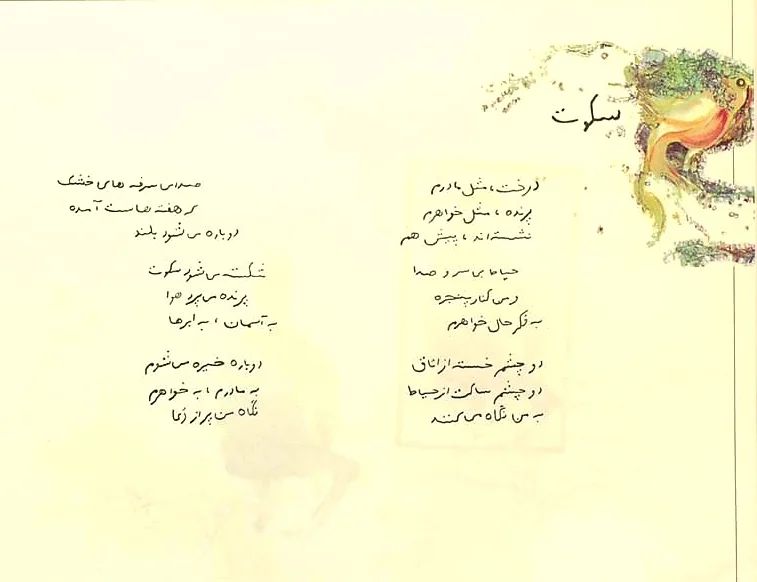 سکوت
درخت، مثل مادرم
پرنده، مثل خواهرم
نشسته‌اند، پیش هم
حیاط بی سر و صدا
و من کنار پنجره
به فکر حال خواهرم
دو چشم خسته از اتاق
دو چشم ساکت از حیاط
به من نگاه می‌کنند
صدای سرفه های خشک
که هفته هاست آمده
دوباره می شود بلند
شکسته می شود سکوت
پرنده می پرد هوا
به آسمان، به ابرها
دوباره خیره می شوم
به مادرم، به خواهرم
نگاه من پر از دعا